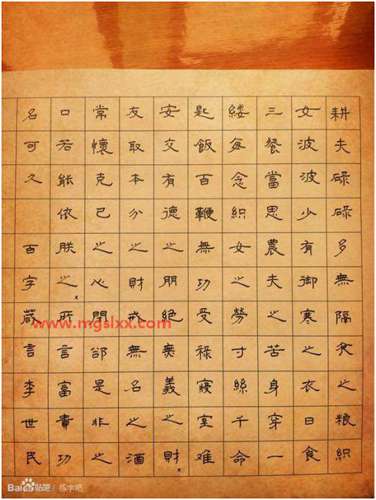 耕夫碌碌多無隔夜之粮織
女波波少有御寒之衣日食
三餐當思農夫之苦身穿一
縷每念織女之勞寸絲千命
匙飯百鞭無功受祿寢室难
安交有德之朋絕無義之財
友取本分之財戒無名之酒
常懷克己之心閉卻是非之
口若能依朕之所言富貴功
名可久 百字箴言李世民
www.mgslxx.com
Baidu贴吧 / 练字吧